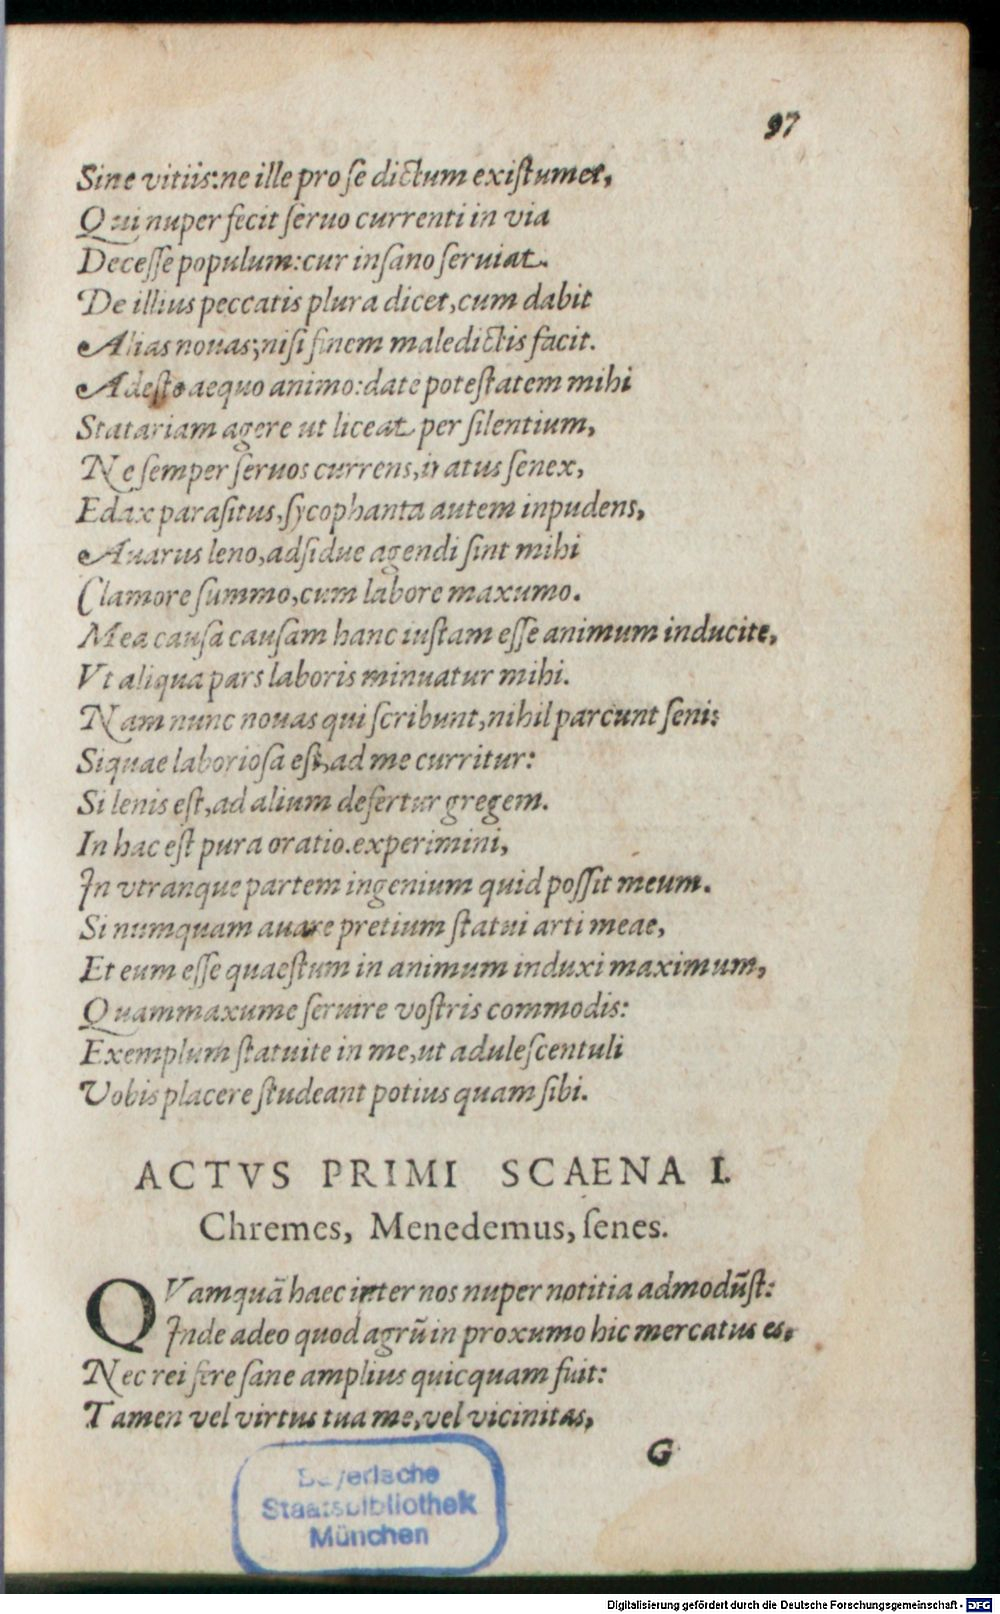 97
Sine vitiis: ne ille pro se dictum existumet,
Qui nuper fecit seruo currenti in via
Decesse populum: cur insano seruiat.
De illius peccatis plura dicet, cum dabit
Alias nouas; nisi finem maledictis facit.
Adeste aequo animo: date potestatem mihi
Statariam agere ut liceat per silentium,
Ne semper seruos currens, iratus senex,
Edax parasitus, sycophanta autem inpudens,
Auarus leno, adsidue agendi sint mihi
Clamore summo, cum labore maxumo.
Mea causa causam hanc iustam esse animum inducite,
Vt aliqua pars laboris minuatur mihi.
Nam nunc nouas qui scribunt, nihil parcunt seni:
Siquae laboriosa est, ad me curritur:
Si lenis est, ad alium defertur gregem.
In hac est pura oratio. experimini,
In vtranque partem ingenium quid possit meum.
Si numquam auare pretium statui arti meae,
Et eum esse quaestum in animum induxi maximum,
Quammaxume seruire vostris commodis:
Exemplum statuite in me, ut adulescentuli
Vobis placere studeant potius quam sibi.
ACTVS PRIMI SCAENA I.
Chremes, Menedemus, senes.
QVamquā haec inter nos nuper notitia admodūst:
Inde adeo quod agrū in proxumo hic mercatus es,
Nec rei fere sane amplius quicquam fuit:
Tamen vel virtus tua me, vel vicinitas,
G
Bayerische
Staatsbibliothek
München
Digitalisierung gefördert durch die Deutsche Forschungsgemeinschaft - DFG